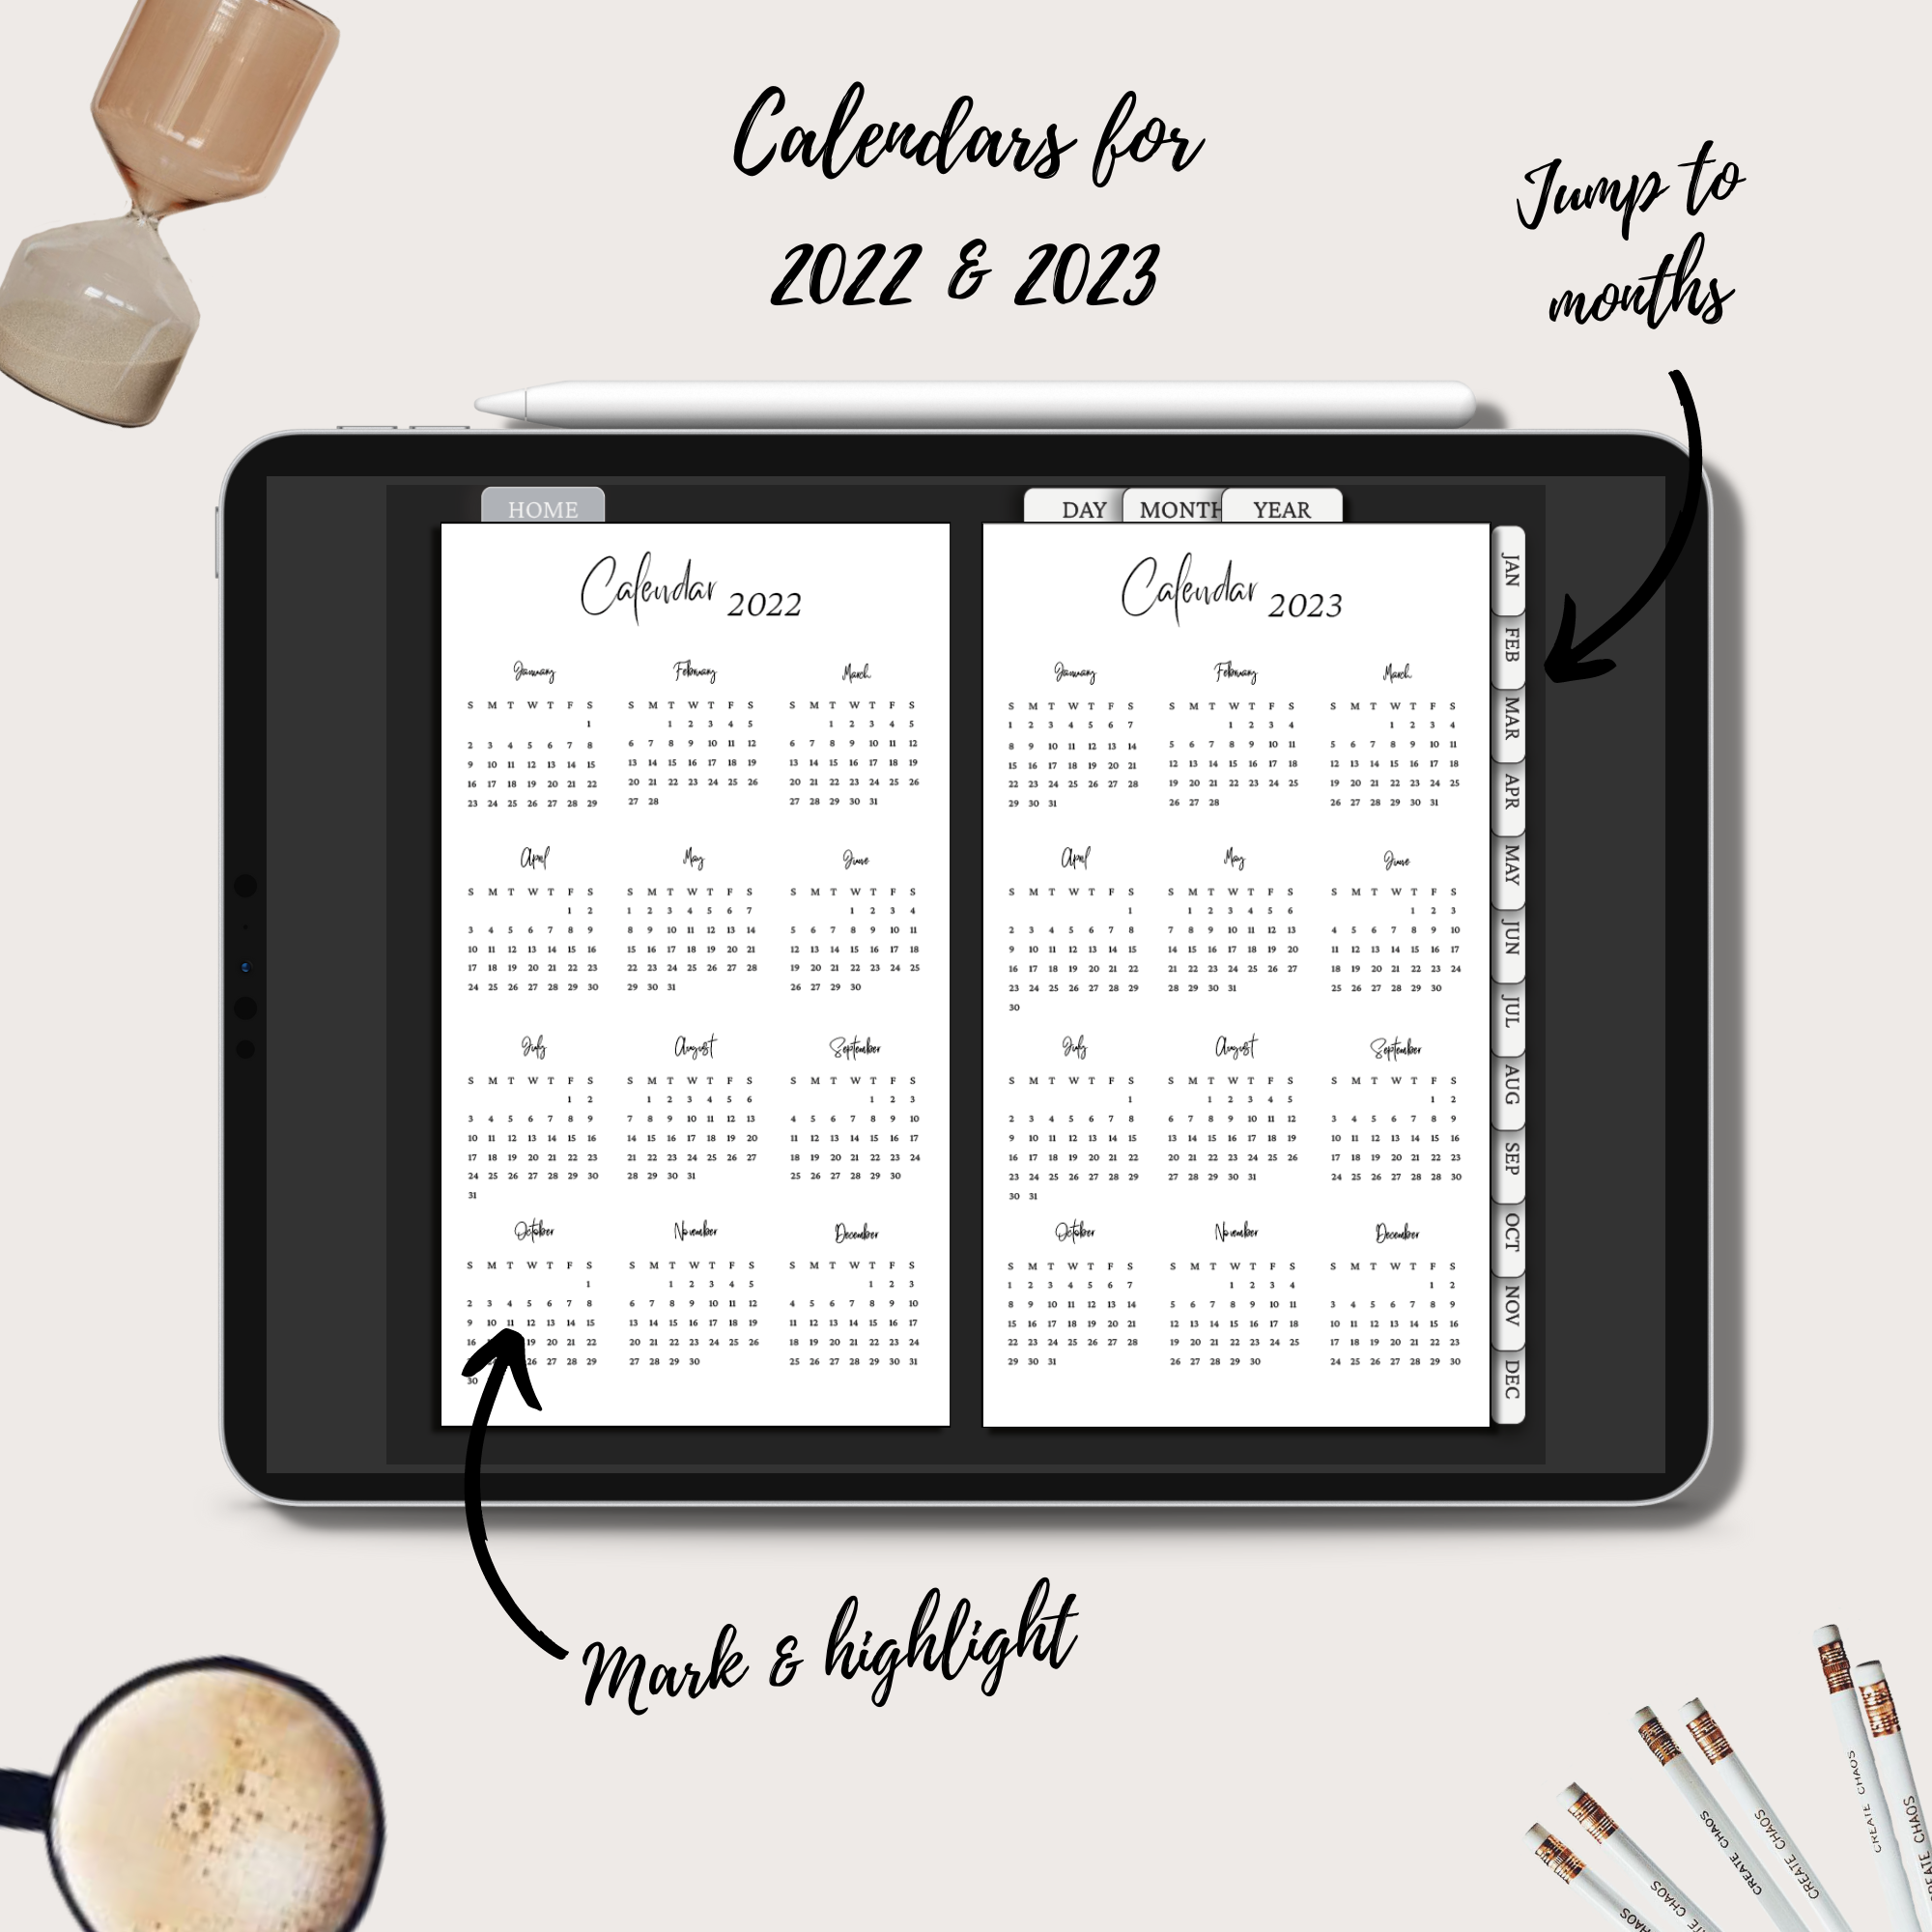 Calendars for
2022 & 2023
Jump to
months
HOME
DAY MONTH YEAR
Calendar 2022
January February March
S M T W T F S S M T W T F S S M T W T F S
1 1 2 3 4 5 1 2 3 4 5
2 3 4 5 6 7 8 6 7 8 9 10 11 12 6 7 8 9 10 11 12
9 10 11 12 13 14 15 13 14 15 16 17 18 19 13 14 15 16 17 18 19
16 17 18 19 20 21 22 20 21 22 23 24 25 26 20 21 22 23 24 25 26
23 24 25 26 27 28 29 27 28 27 28 29 30 31
April May June
S M T W T F S S M T W T F S S M T W T F S
1 2 1 2 3 4 5 6 7 1 2 3 4
3 4 5 6 7 8 9 8 9 10 11 12 13 14 5 6 7 8 9 10 11
10 11 12 13 14 15 16 15 16 17 18 19 20 21 12 13 14 15 16 17 18
17 18 19 20 21 22 23 22 23 24 25 26 27 28 19 20 21 22 23 24 25
24 25 26 27 28 29 30 29 30 31 26 27 29 30
July August September
S M T W T F S S M T W T F S S M T W T F S
1 2 1 2 3 4 5 6 1 2 3
3 4 5 6 7 8 9 7 8 9 10 11 12 13 4 5 6 7 8 9 10
10 11 12 13 14 15 16 14 15 16 17 18 19 20 11 12 13 14 15 16 17
17 18 19 20 21 22 23 21 22 23 24 25 26 27 18 19 20 21 22 23 24
24 25 26 27 28 29 30 28 29 30 31 25 26 27 28 29 30
31
October November December
S M T W T F S S M T W T F S S M T W T F S
1 1 2 3 4 5 1 2 3
2 3 4 5 6 7 8 6 7 8 9 10 11 12 4 5 6 7 8 9 10
9 10 11 12 13 14 15 13 14 15 16 17 18 19 11 12 13 14 15 16 17
16 19 20 21 22 20 21 22 23 24 25 26 18 19 20 21 22 23 24
26 27 28 29 27 28 29 30 25 26 27 28 29 30 31
30
Calendar 2023
January February March
S M T W T F S S M T W T F S S M T W T F S
1 2 3 4 5 6 7 1 2 3 4 1 2 3 4
8 9 10 11 12 13 14 5 6 7 8 9 10 11 5 6 7 8 9 10 11
15 16 17 18 19 20 21 12 13 14 15 16 17 18 12 13 14 15 16 17 18
22 23 24 25 26 27 28 19 20 21 22 23 24 25 19 20 21 22 23 24 25
29 30 31 26 27 28 26 27 28 29 30 31
April May June
S M T W T F S S M T W T F S S M T W T F S
1 1 2 3 4 5 6 1 2 3
2 3 4 5 6 7 8 7 8 9 10 11 12 13 4 5 6 7 8 9 10
9 10 11 12 13 14 15 14 15 16 17 18 19 20 11 12 13 14 15 16 17
16 17 18 19 20 21 22 21 22 23 24 25 26 27 18 19 20 21 22 23 24
23 24 25 26 27 28 29 28 29 30 31 25 26 27 28 29 30
30
July August September
S M T W T F S S M T W T F S S M T W T F S
1 1 2 3 4 5 1 2
2 3 4 5 6 7 8 6 7 8 9 10 11 12 3 4 5 6 7 8 9
9 10 11 12 13 14 15 13 14 15 16 17 18 19 10 11 12 13 14 15 16
16 17 18 19 20 21 22 20 21 22 23 24 25 26 17 18 19 20 21 22 23
23 24 25 26 27 28 29 27 28 29 30 31 24 25 26 27 28 28 30
30 31
October November December
S M T W T F S S M T W T F S S M T W T F S
1 2 3 4 5 6 7 1 2 3 4 1 2
8 9 10 11 12 13 14 5 6 7 8 9 10 11 3 4 5 6 7 8 9
15 16 17 18 19 20 21 12 13 14 15 16 17 18 10 11 12 13 14 15 16
22 23 24 25 26 27 28 19 20 21 22 23 24 25 17 18 19 20 21 22 23
29 30 31 26 27 28 29 30 24 25 26 27 28 29 30
JAN
FEB
MAR
APR
MAY
JUN
JUL
AUG
SEP
OCT
NOV
DEC
Mark & highlight
CREATE CHAOS
CREATE CHAOS
CREATE CHAOS
CREATE CHAOS
CREATE CHAOS
CHAOS